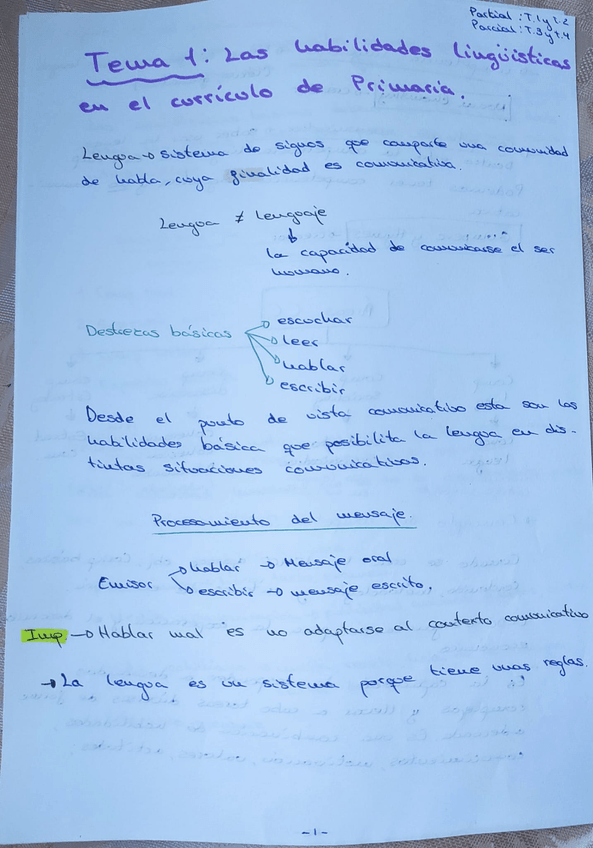 Parcial: T.1 y T.2
Parcial: T.3 y T.4
Tema 1: Las habilidades lingüísticas
en el currículo de Primaria.
Lengua → sistema de signos que comparte una comunidad
de habla, cuya finalidad es comunicativa.
Lengua ≠ lenguaje
↓
la capacidad de comunicarse el ser
humano.
Destrezas básicas
→ escuchar
→ leer
→ hablar
→ escribir
Desde el punto de vista comunicativo esta son las
habilidades básica que posibilita la lengua en dis-
tintas situaciones comunicativas.
Procesamiento del mensaje.
Emisor
→ hablar → Mensaje oral
→ escribir → mensaje escrito.
Imp → Hablar mal es no adaptarse al contexto comunicativo
→ La lengua es un sistema porque tiene unas reglas.
-1-